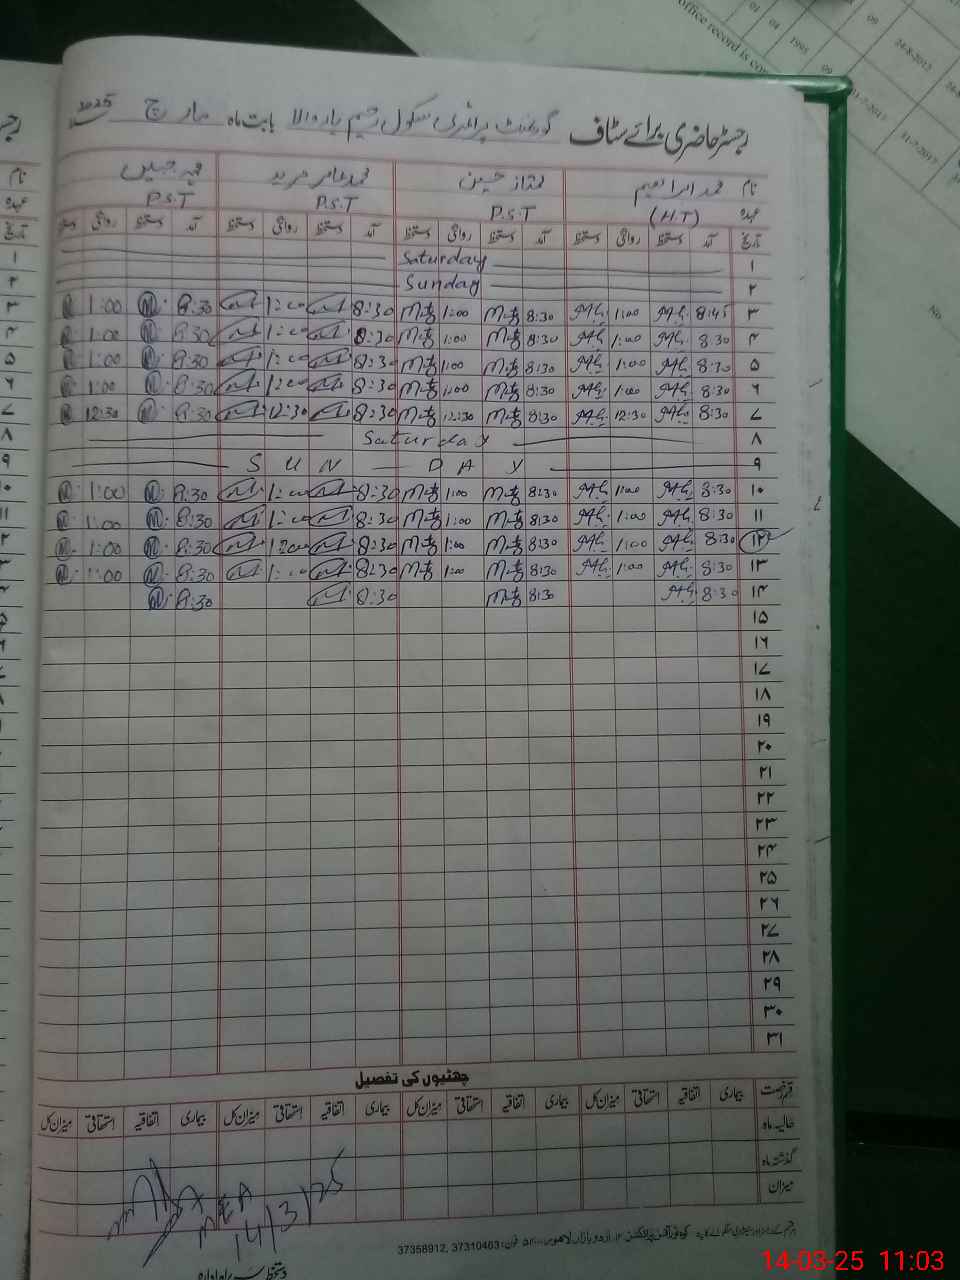 رجسٹر حاضری برائے سٹاف گورنمنٹ پرائمری سکول رحیم یار والا بابت ماہ مارچ 2025
نام محمد ابراہیم ممتاز حسین محمد عامر مرید
عہدہ (H.T) P.S.T P.S.T P.S.T
تاریخ آمد دستخط روانگی دستخط آمد دستخط روانگی دستخط آمد دستخط روانگی دستخط آمد دستخط روانگی دستخط
۱ Saturday
۲ Sunday
۳ 8:45 1:00 8:30 1:00 8:30 1:00 8:30 1:00
۴ 8:30 1:00 8:30 1:00 8:30 1:00 8:30 1:00
۵ 8:30 1:00 8:30 1:00 8:30 1:00 8:30 1:00
۶ 8:30 1:00 8:30 1:00 8:30 1:00 8:30 1:00
۷ 8:30 12:30 8:30 12:30 8:30 12:30 8:30 12:30
۸ Saturday
۹ SUN DAY
۱۰ 8:30 1:00 8:30 1:00 8:30 1:00 8:30 1:00
۱۱ 8:30 1:00 8:30 1:00 8:30 1:00 8:30 1:00
۱۲ 8:30 1:00 8:30 1:00 8:30 1:00 8:30 1:00
۱۳ 8:30 1:00 8:30 1:00 8:30 1:00 8:30 1:00
۱۴ 8:30 8:30 8:30 8:30
۱۵
۱۶
۱۷
۱۸
۱۹
۲۰
۲۱
۲۲
۲۳
۲۴
۲۵
۲۶
۲۷
۲۸
۲۹
۳۰
۳۱
چھٹیوں کی تفصیل
قسم رخصت بیماری اتفاقیہ استحقاقی میزان کل بیماری اتفاقیہ استحقاقی میزان کل بیماری اتفاقیہ استحقاقی میزان کل بیماری اتفاقیہ استحقاقی میزان کل
حالیہ ماہ
گذشتہ ماہ
میزان
MEA
14/3/25
اردو بازار لاہور فون: 37358912, 37310463
دستخط سربراہ ادارہ
14-03-25 11:03
office record is
01 04 1995 09
09 24-8-2012
31-7-2017
No